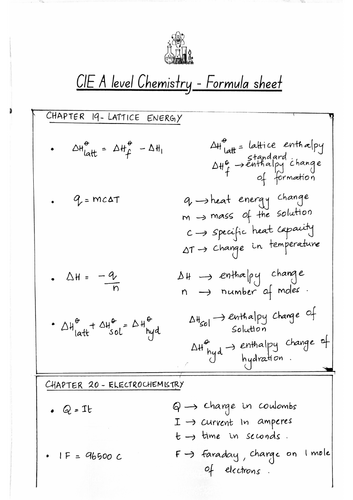 CIE A level Chemistry - Formula sheet
CHAPTER 19- LATTICE ENERGY
• ΔH⦵latt = ΔH⦵f - ΔH1
ΔH⦵latt = lattice enthalpy
ΔH⦵f → standard enthalpy change
of formation
• q = mcΔT
q → heat energy change
m → mass of the solution
c → specific heat capacity
ΔT → change in temperature
• ΔH = -q/n
ΔH → enthalpy change
n → number of moles.
• ΔH⦵latt + ΔH⦵sol = ΔH⦵hyd
ΔHsol → enthalpy change of
solution
ΔH⦵hyd → enthalpy change of
hydration.
CHAPTER 20 - ELECTROCHEMISTRY
• Q = It
Q → charge in coulombs
I → current in amperes
t → time in seconds.
• 1F = 96500 C
F → faraday, charge on 1 mole
of electrons.